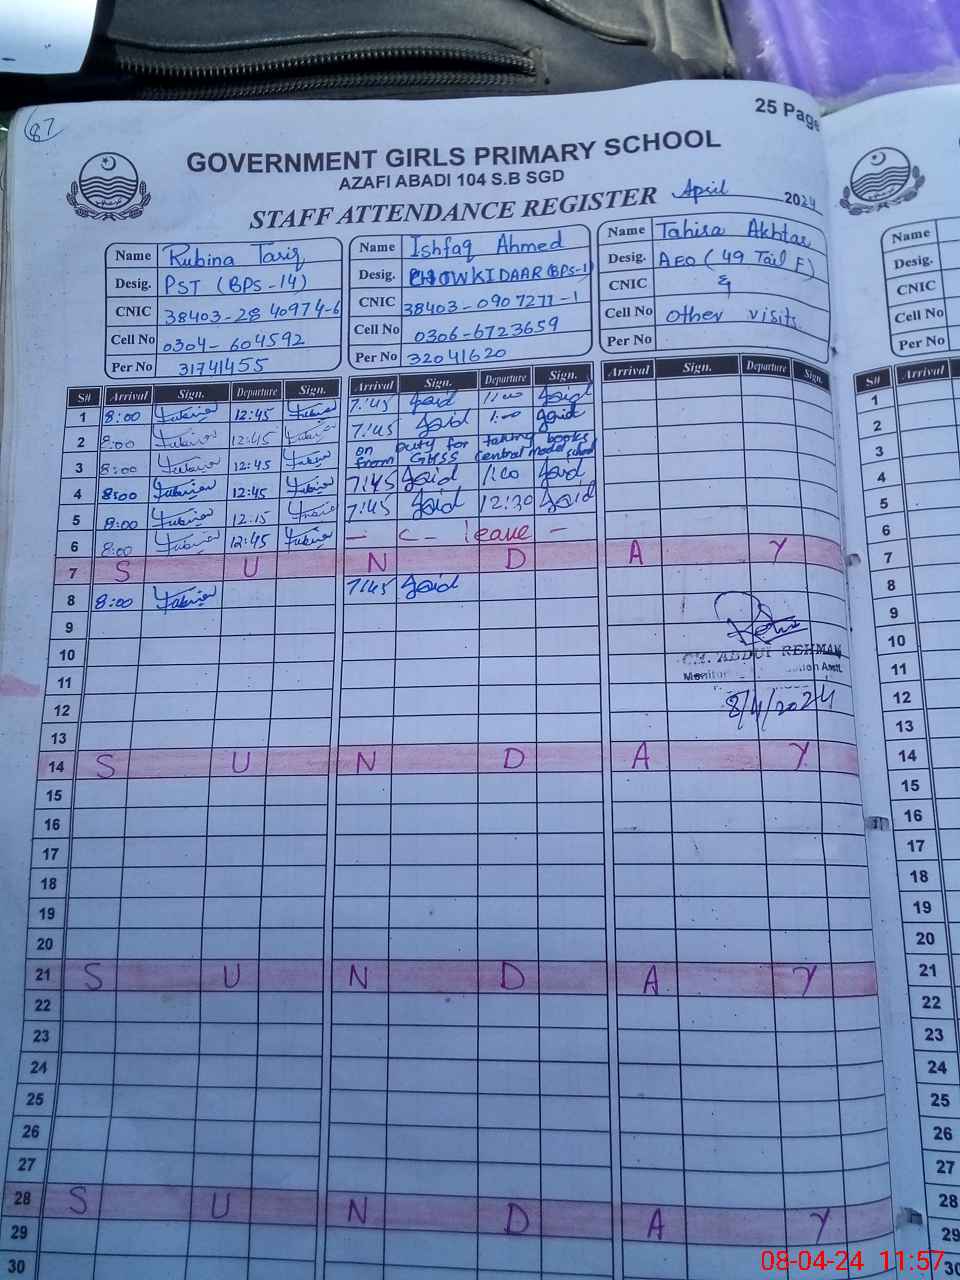 87
25 Page
GOVERNMENT GIRLS PRIMARY SCHOOL
AZAFI ABADI 104 S.B SGD
STAFF ATTENDANCE REGISTER April 2024
Name Rubina Tariq
Desig. PST (BPS-14)
CNIC 38403-2840974-6
Cell No 0304-604592
Per No 31741455
Name Ishfaq Ahmed
Desig. CHOWKIDAAR (BPS-1)
CNIC 38403-0907277-1
Cell No 0306-6723659
Per No 32041620
Name Tahira Akhtar
Desig. AEO (49 Tail F)
CNIC &
Cell No other visits
Per No
S# Arrival Sign. Departure Sign. Arrival Sign. Departure Sign. Arrival Sign. Departure Sign.
1 8:00 12:45 7:45 1:00
2 8:00 12:45 7:45 1:00
3 8:00 12:45 on Duty for taking books
from GHSS central model school
4 8:00 12:45 7:45 1:00
5 8:00 12:15 7:45 12:30
6 8:00 12:45 - C- leave -
7 S U N D A Y
8 8:00 7:45
9
10
11
12
13
14 S U N D A Y
15
16
17
18
19
20
21 S U N D A Y
22
23
24
25
26
27
28 S U N D A Y
29
30
CH. ABDUL REHMAN
8/4/2024
Name
Desig.
CNIC
Cell No
Per No
S# Arrival
1
2
3
4
5
6
7
8
9
10
11
12
13
14
15
16
17
18
19
20
21
22
23
24
25
26
27
28
29
30
08-04-24 11:57